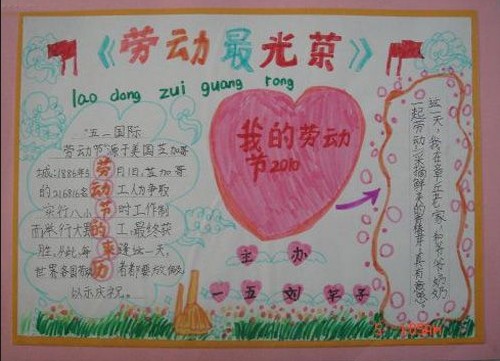 《劳动最光荣》
lao dong zui guang rong
我的劳动
节2010
"五一国际
劳动节"源于美国芝加哥
城,1886年5月1日,芝加哥
的216816名工人争取
实行八小时工作制
而举行大罢工,最终获
胜。从此,每逢这一天,
世界各国劳动者都要放假,
以示庆祝。
劳动节的来力
主办
一五刘
这一天,我在章丘老家,和爷爷奶奶
一起劳动